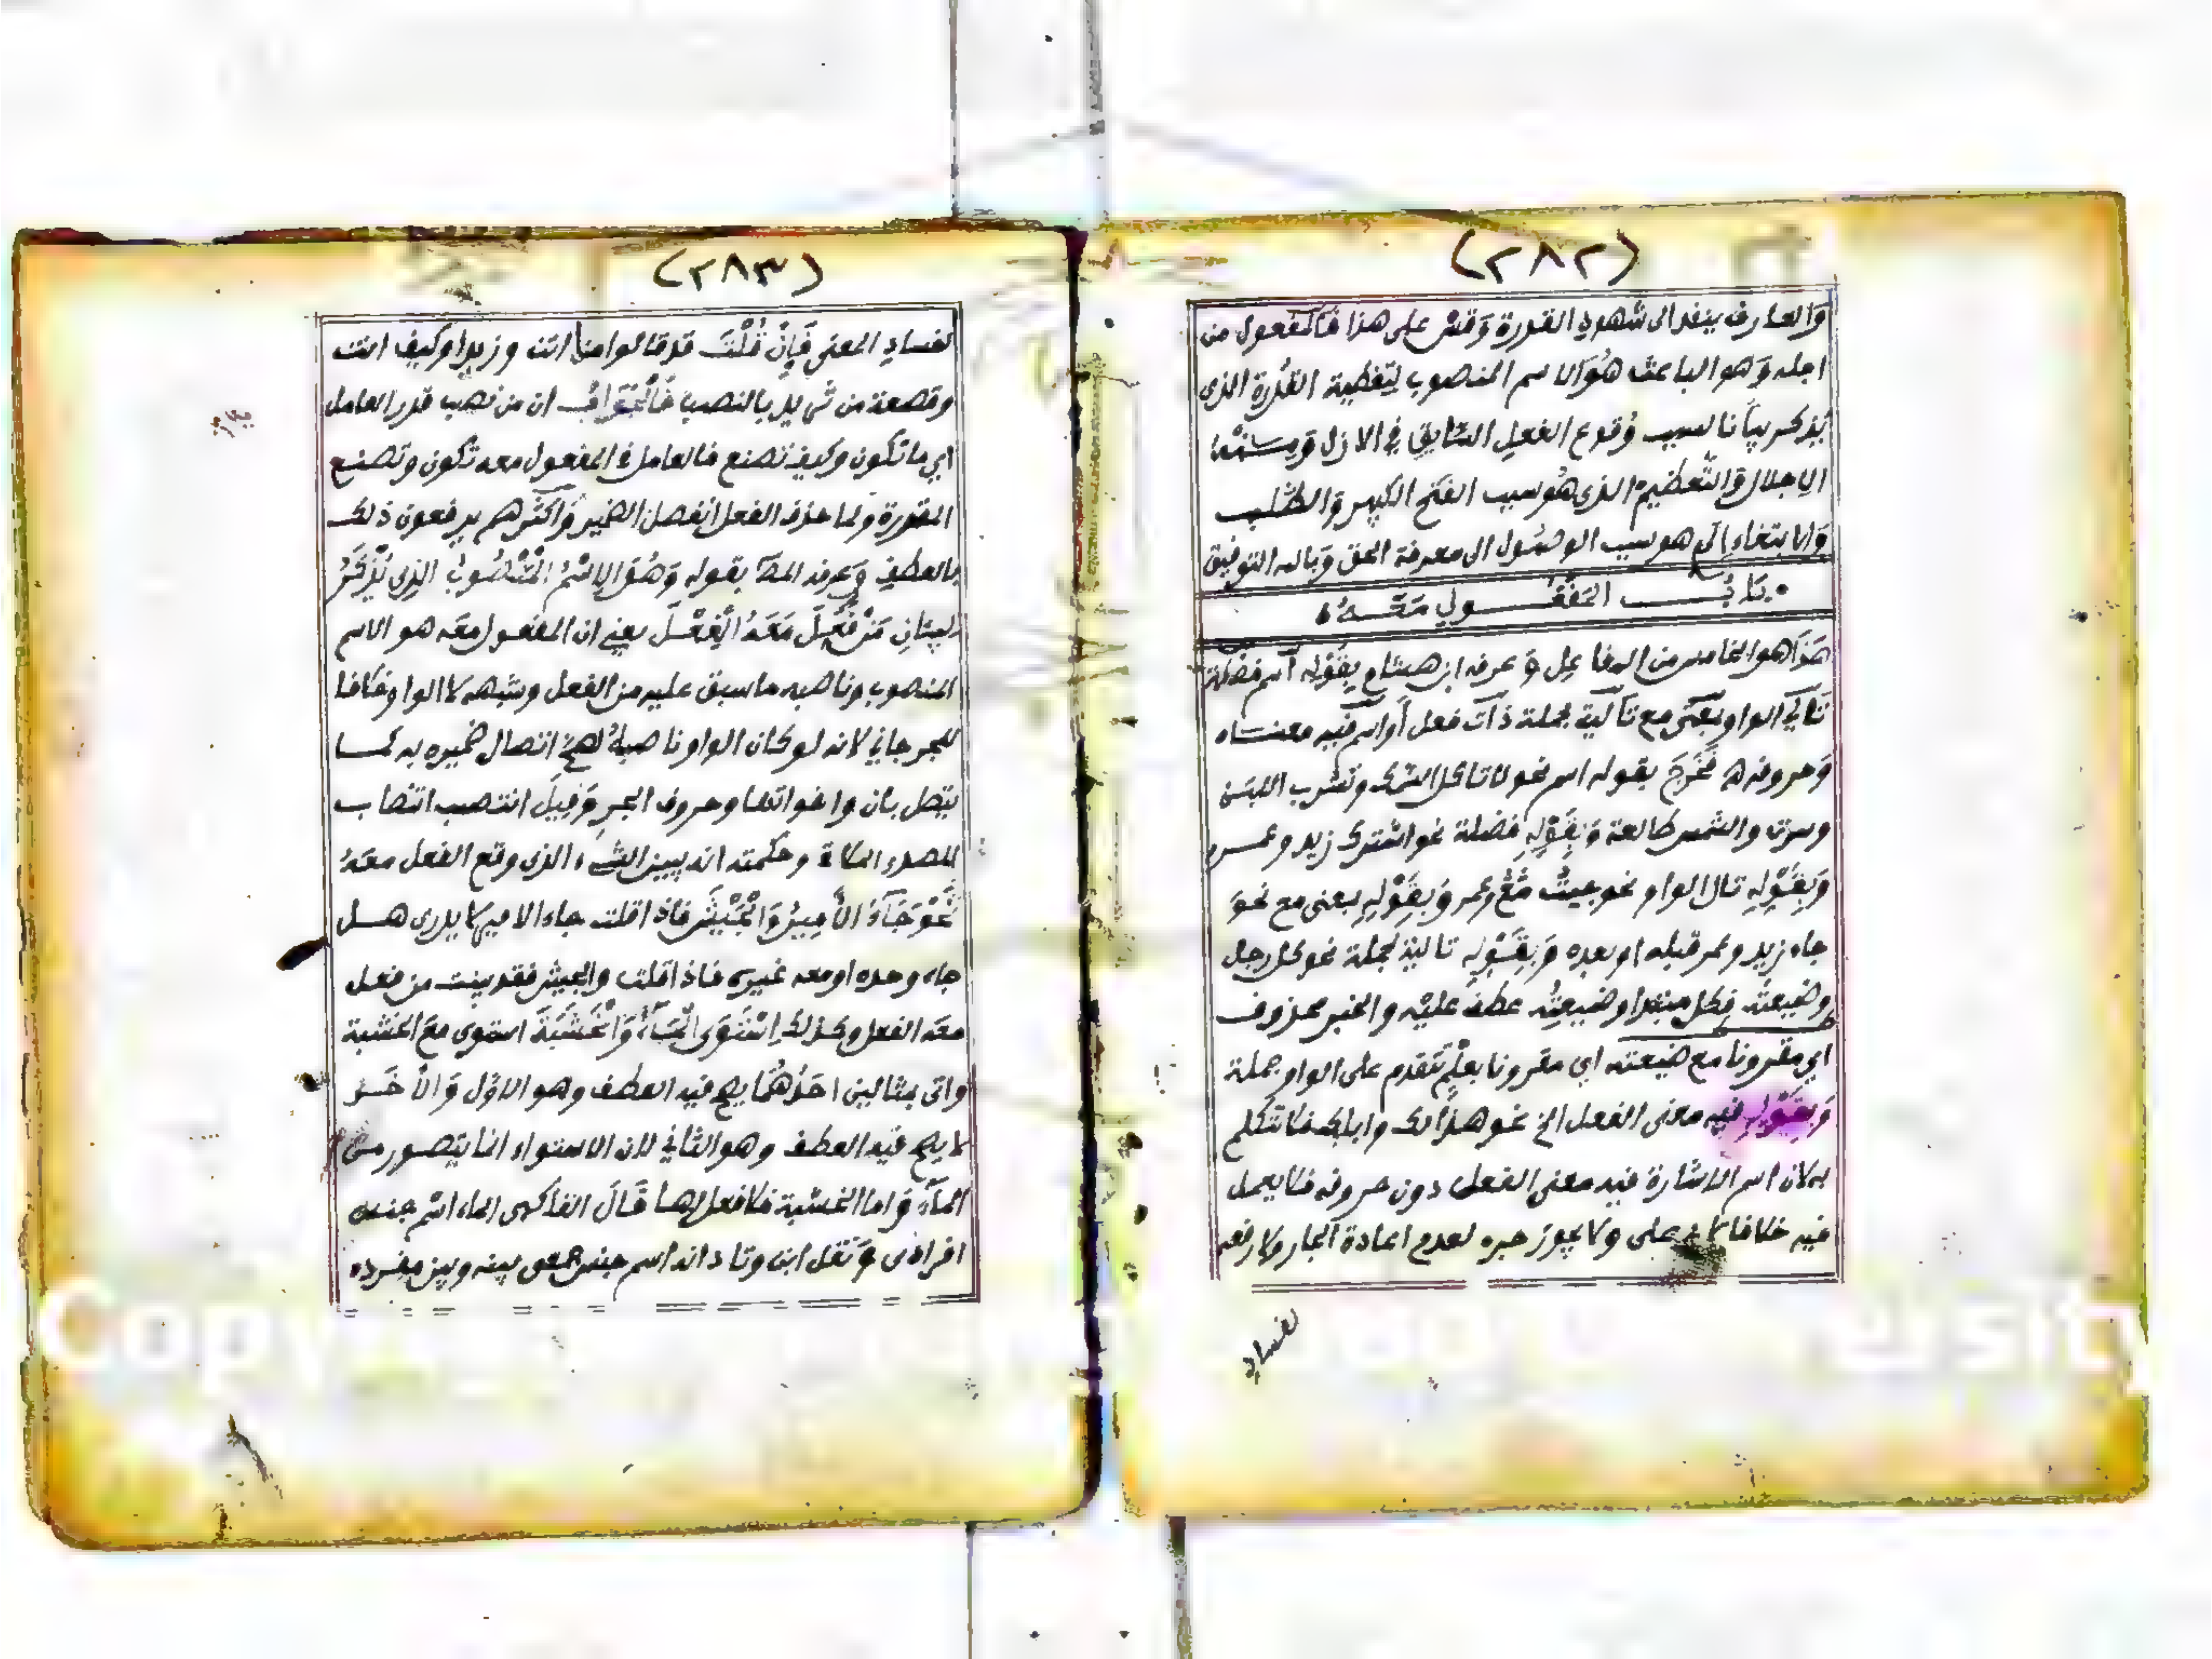 (٢٨٢)
والعارف ينفد الى شهود القدرة وقس على هذا فالمفعول من
اجله وهو الباعث هو الاسم المنصوب لتغطية القدرة الذى
يذكر بيانا لسبب وقوع الفعل السابق في الازل ومنه
الاجلال والتعظيم الذى هو سبب الفتح الكبير والطلب
والابتغاء الذي هو سبب الوصول الى معرفة الحق وبالله التوفيق
باب المفعول معه
هذا هو الخامس من المفاعيل وعرفه ابن هشام بقوله اسم فضلة
تالي الواو بمعنى مع تالية لجملة ذات فعل أو اسم فيه معناه
وحروفه فخرج بقوله اسم نحو لا تاكل السمك وتشرب اللبن
وسرت والشمس طالعة وبقوله فضلة نحو اشترك زيد وعمرو
وبقوله تال الواو نحو جيت مع عمر وبقوله بمعنى مع نحو
جاء زيد وعمر قبله او بعده وبقوله تالية لجملة نحو كل رجل
وضيعته فكل مبتدا وضيعته عطف عليه والخبر محذوف
اي مقرونا مع ضيعته اي مقرونا بعلم تتقدم على الواو جملة
وبقوله فيه معنى الفعل الخ نحو هذا لك واباك فلا تتكلم
به لان اسم الاشارة فيه معنى الفعل دون حروفه فلا يعمل
فيه خلافا لابي على ولا يجوز جره لعدم اعادة الجار ولا رفعه
لفساد
(٢٨٣)
لفساد المعنى فإن قلت قد قالوا ما انت وزيدا وكيف انت
وقصعة من ثريد بالنصب فالجواب ان من نصب قدر العامل
اي ما تكون وكيف تصنع فالعامل في المفعول معه تكون وتصنع
المقدرة ولما حذف الفعل انفصل الضمير واكثرهم يرفعون ذلك
بالعطف وعرفه المص بقوله وهو الاسم المنصوب الذي يذكر
لبيان من فعل معه الفعل يعني ان المفعول معه هو الاسم
المنصوب وناصبه ما سبق عليه من الفعل وشبهه لا الواو خلافا
للجرجاني لانه لو كان الواو ناصبة لصح اتصال ضميره به كما
يتصل بان واخواتها وحروف الجر وقيل انتصب انتصاب
المصدر وحكمته انه يبين الشيء الذى وقع الفعل معه
نحو جاء الأمير والجيش فاذا قلت جاء الامير لا يدرى هل
جاء وحده او معه غيره فاذا قلت والجيش فقد بينت من فعل
معه الفعل وكذلك استوى الماء والخشبة استوى مع الخشبة
واتى بمثالين احدهما يصح فيه العطف وهو الاول والأخر
لا يصح فيه العطف وهو الثاني لان الاستواء انما يتصور من
الماء واما الخشبة فلا فعل لها قال الفاكهى الماء اسم جنس
افرادى ونقل ابن وتاد انه اسم جنس جمعى بينه وبين مفرده